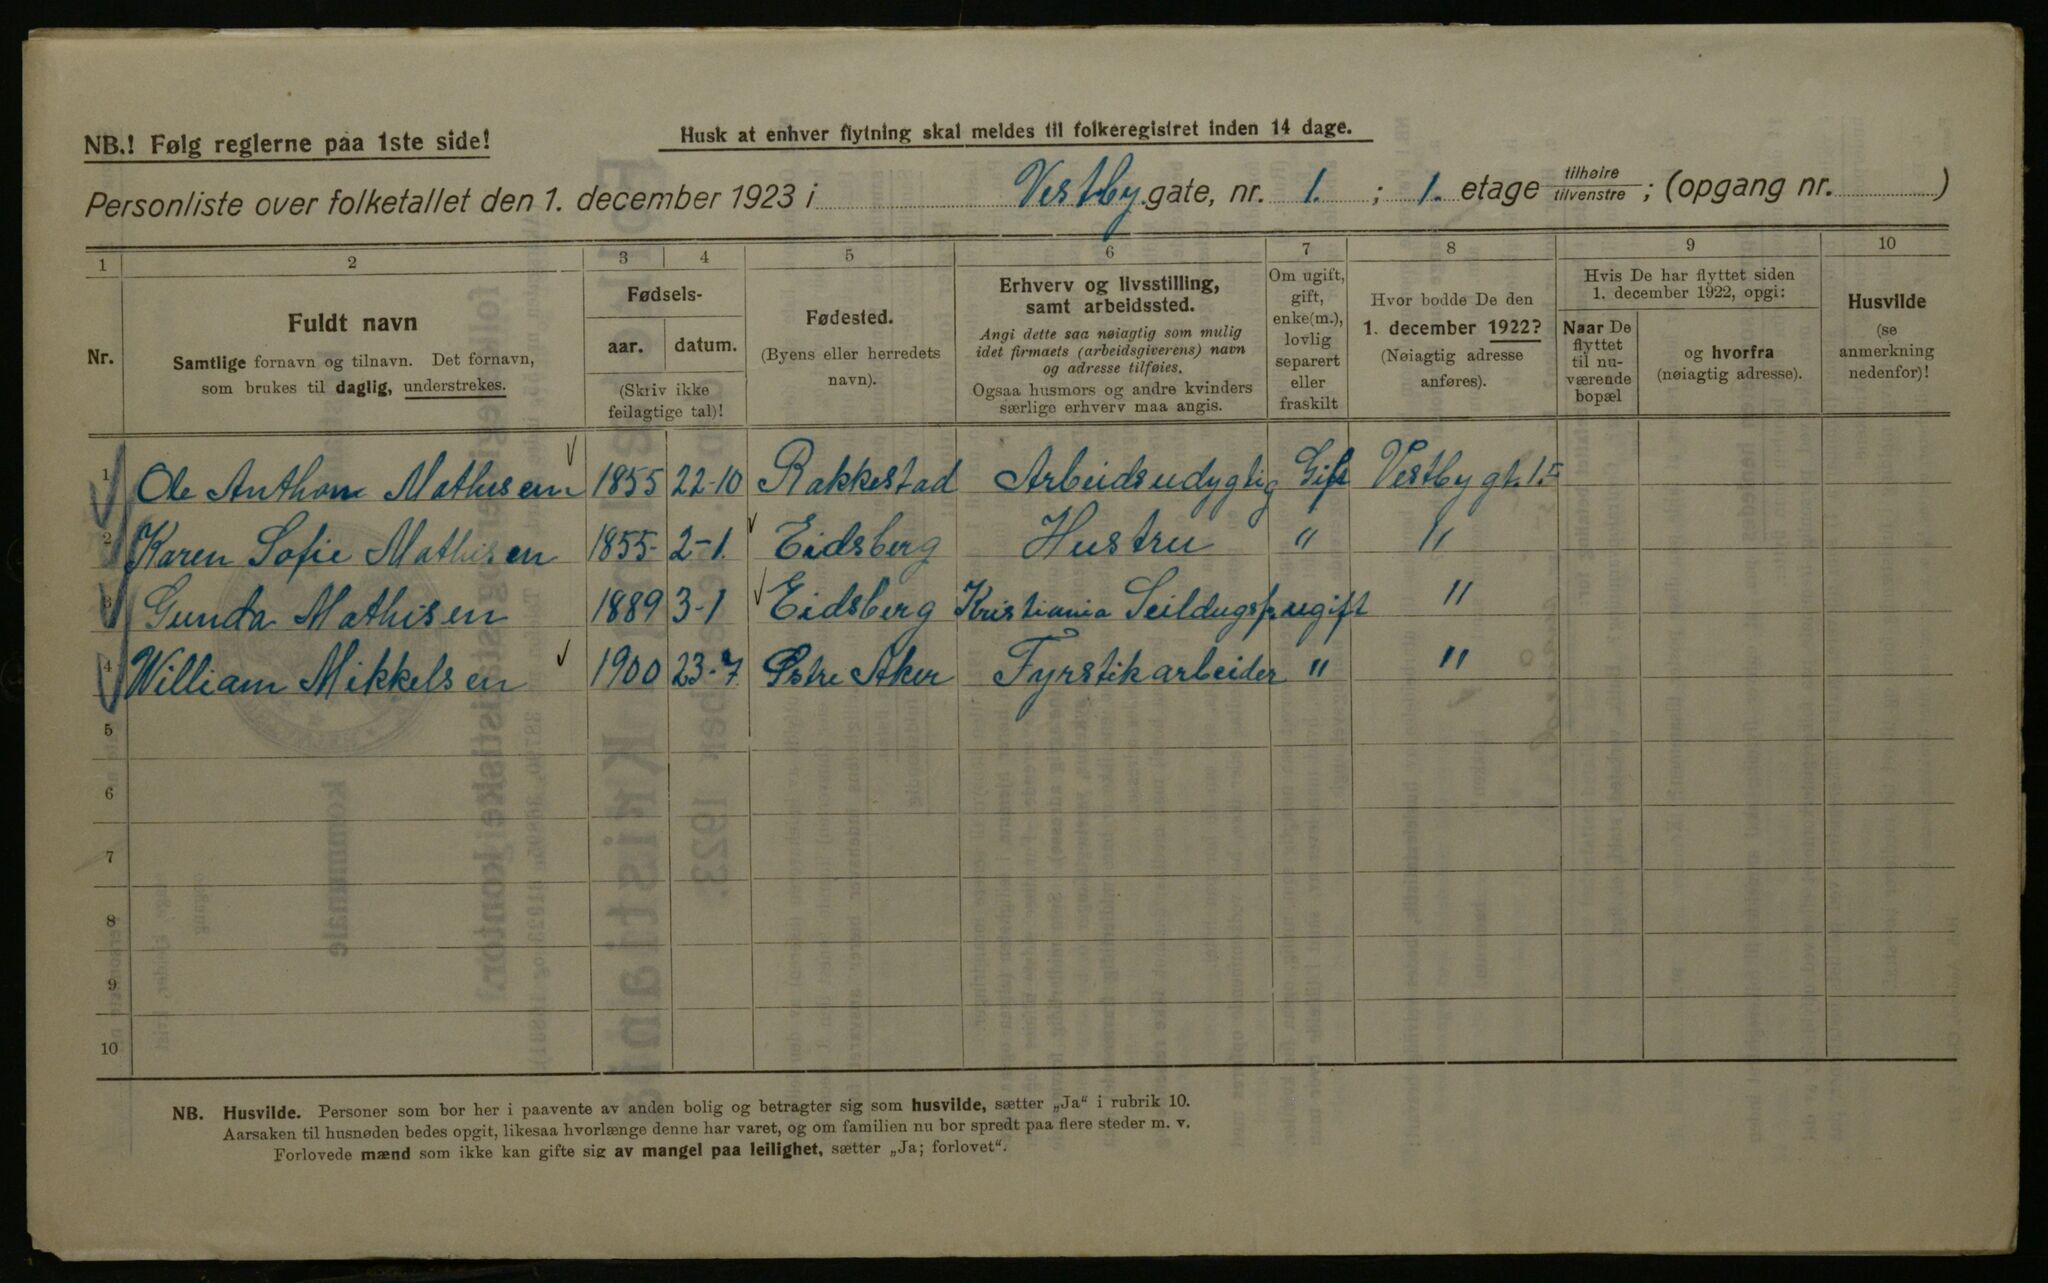 NB.! Følg reglerne paa 1ste side!
Husk at enhver flytning skal meldes til folkeregistret inden 14 dage.
Personliste over folketallet den 1. december 1923 i Vestby gate, nr. 1. ; 1. etage tilhøire tilvenstre ; (opgang nr. )
1 2 3 4 5 6 7 8 9 10
Nr.
Fuldt navn
Samtlige fornavn og tilnavn. Det fornavn,
som brukes til daglig, understrekes.
Fødsels-
aar. datum.
(Skriv ikke
feilagtige tal)!
Fødested.
(Byens eller herredets
navn).
Erhverv og livsstilling,
samt arbeidssted.
Angi dette saa nøiagtig som mulig
idet firmaets (arbeidsgiverens) navn
og adresse tilføies.
Ogsaa husmors og andre kvinders
særlige erhverv maa angis.
Om ugift,
gift,
enke(m.),
lovlig
separert
eller
fraskilt
Hvor bodde De den
1. december 1922?
(Nøiagtig adresse
anføres).
Hvis De har flyttet siden
1. december 1922, opgi:
Naar De
flyttet
til nu-
værende
bopæl
og hvorfra
(nøiagtig adresse).
Husvilde
(se
anmerkning
nedenfor)!
1 Ole Anthon Mathisen 1855 22-10 Rakkestad Arbeidsudygtig Gift Vestby gt. 1.
2 Karen Sofie Mathisen 1855- 2-1. Eidsberg Hustru " "
3 Gunda Mathisen 1889 3-1 Eidsberg Kristiania Seildugsf. ugift "
4 William Mikkelsen 1900 23-7 Østre Aker Fyrstikarbeider " "
5
6
7
8
9
10
NB. Husvilde. Personer som bor her i paavente av anden bolig og betragter sig som husvilde, sætter „Ja" i rubrik 10.
Aarsaken til husnøden bedes opgit, likesaa hvorlænge denne har varet, og om familien nu bor spredt paa flere steder m. v.
Forlovede mænd som ikke kan gifte sig av mangel paa leilighet, sætter „Ja; forlovet".